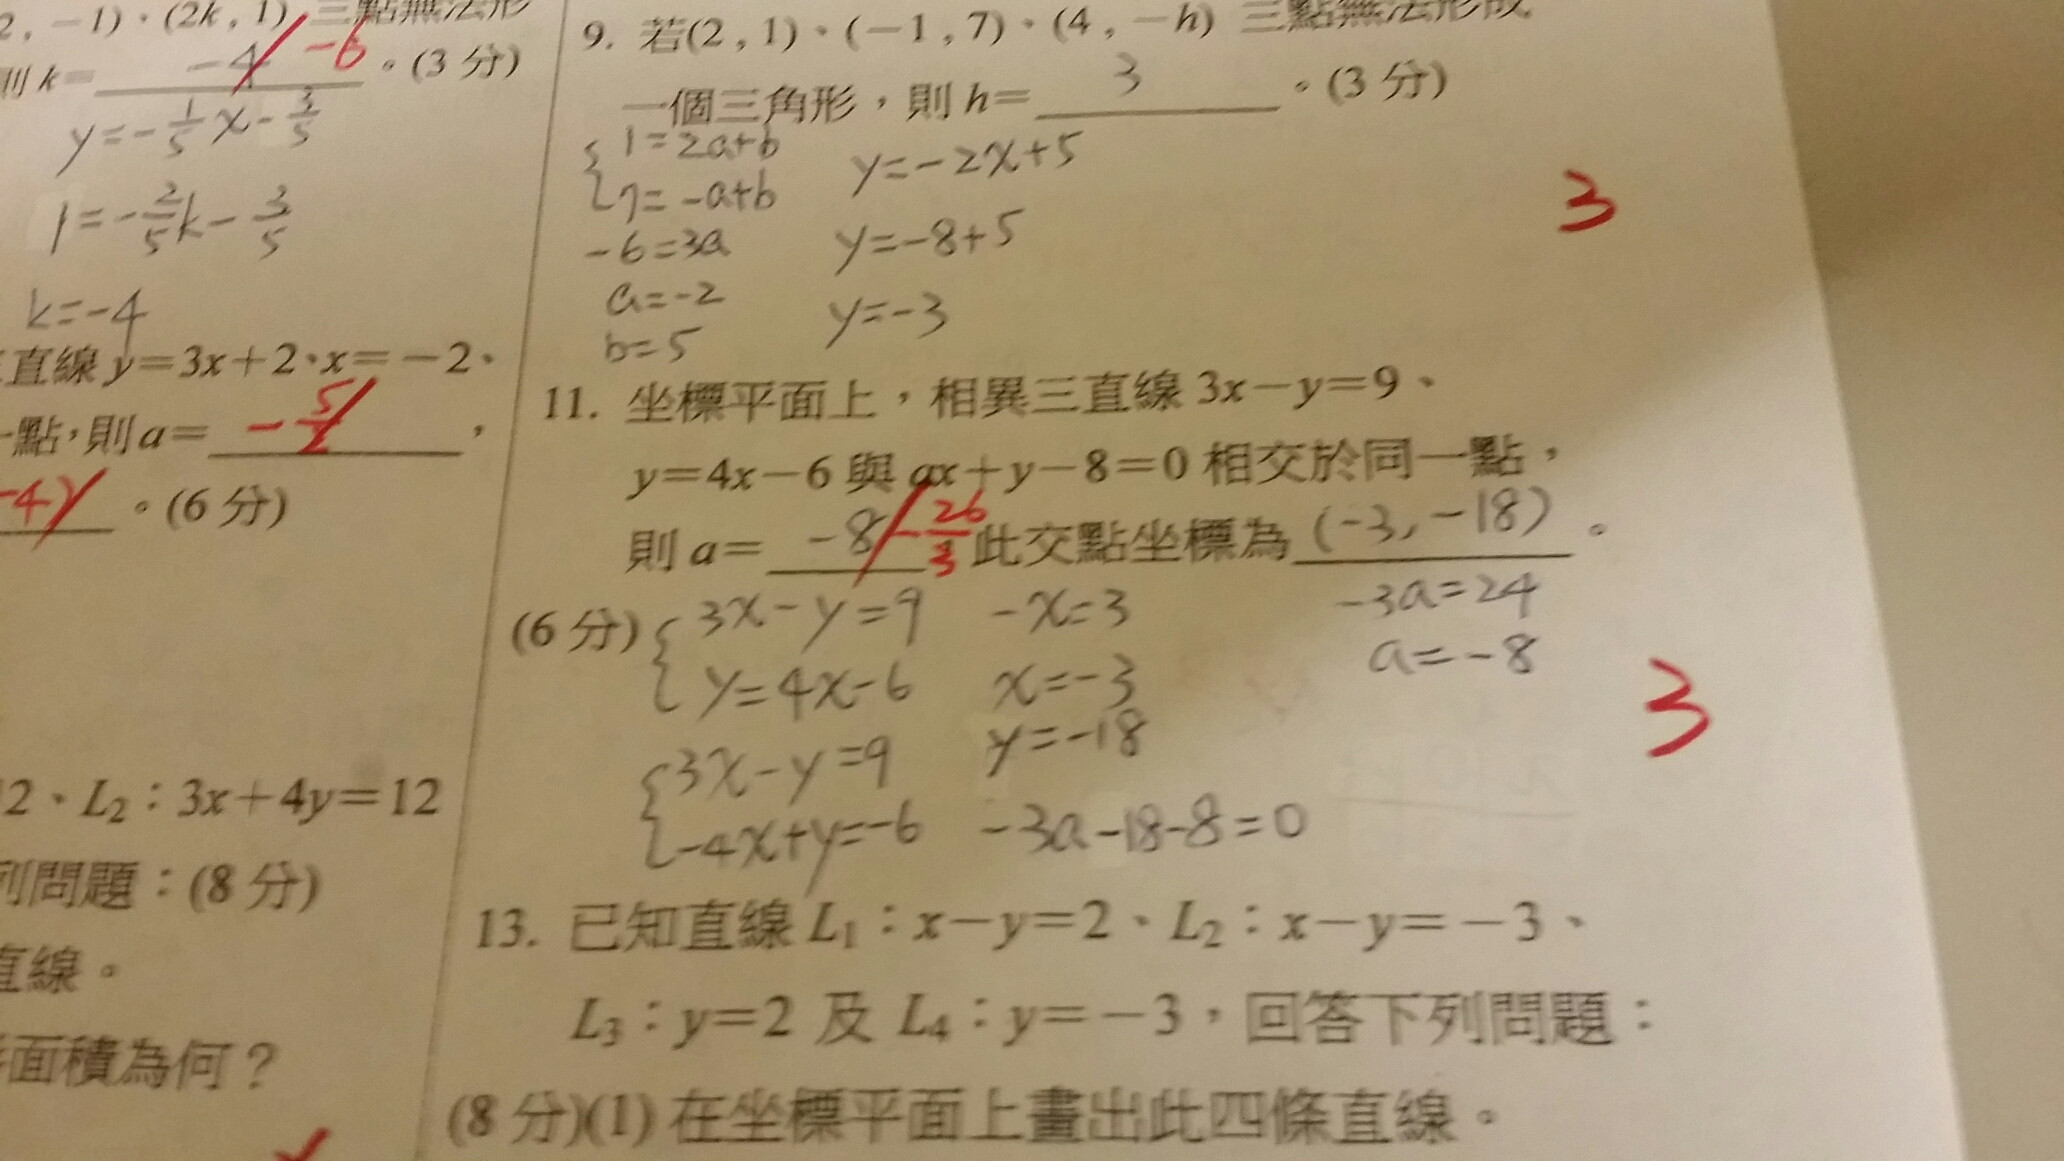 2 , −1)、(2k , 1) 三點無法形
則 k= -4 -6 。(3 分)
y=-1/5x-3/5
1=-2/5k-3/5
k=-4
直線 y=3x+2、x=−2、
一點，則 a= -5/2 ，
-4) 。(6 分)
2、L₂：3x+4y=12
列問題：(8 分)
直線。
面積為何？
9. 若(2 , 1)、(−1 , 7)、(4 , −h) 三點無法形成
一個三角形，則 h= 3 。(3 分)
1=2a+b y=-2x+5
7=-a+b
-6=3a y=-8+5
a=-2 y=-3
b=5
3
11. 坐標平面上，相異三直線 3x−y=9、
y=4x−6 與 ax+y−8=0 相交於同一點，
則 a= -8 -26/3 此交點坐標為 (-3, -18) 。
(6 分) { 3x-y=9 -x=3 -3a=24
y=4x-6 x=-3 a=-8
{ 3x-y=9 y=-18
-4x+y=-6 -3a-18-8=0
3
13. 已知直線 L₁：x−y=2、L₂：x−y=−3、
L₃：y=2 及 L₄：y=−3，回答下列問題：
(8 分)(1) 在坐標平面上畫出此四條直線。